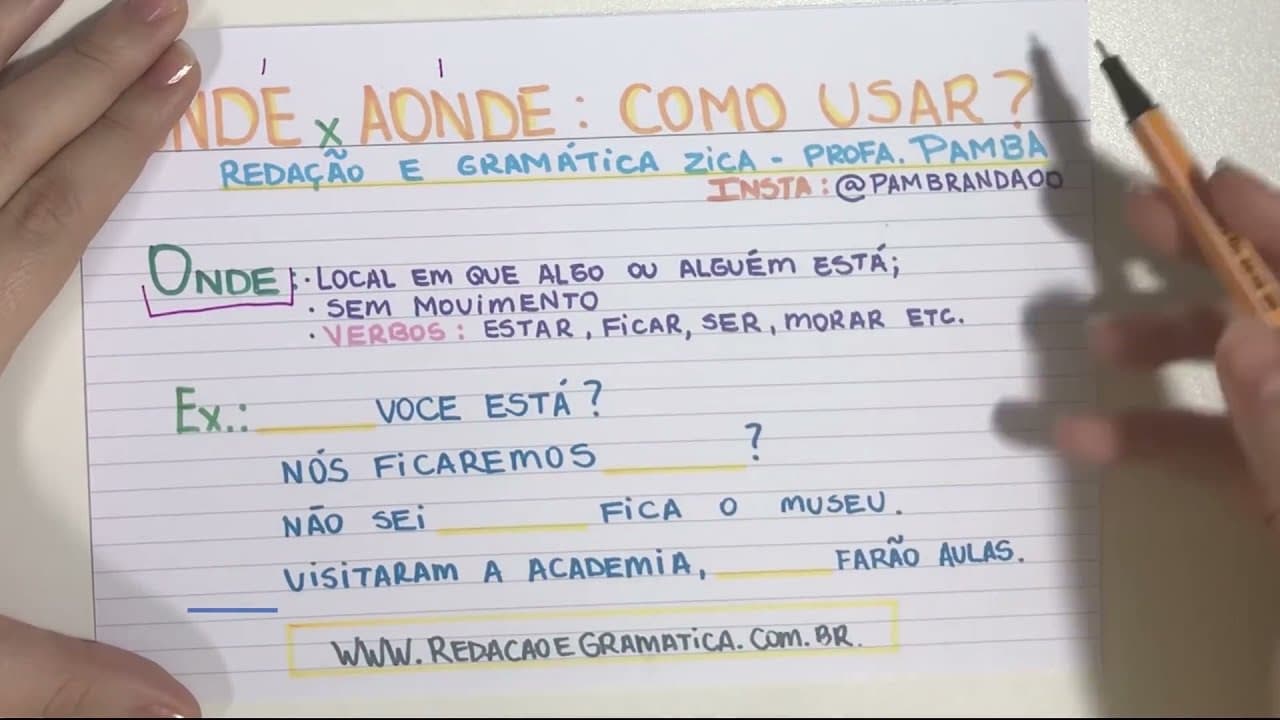 NDE X AONDE: COMO USAR?
REDAÇÃO E GRAMÁTICA ZICA - PROFA. PAMBA
INSTA: @PAMBRANDAOO
ONDE: · LOCAL EM QUE ALGO OU ALGUÉM ESTÁ;
· SEM MOVIMENTO
· VERBOS: ESTAR, FICAR, SER, MORAR ETC.
EX.: ______ VOCE ESTÁ?
NÓS FICAREMOS ______ ?
NÃO SEI ______ FICA O MUSEU.
VISITARAM A ACADEMIA, ______ FARÃO AULAS.
WWW.REDACAOEGRAMATICA.COM.BR.